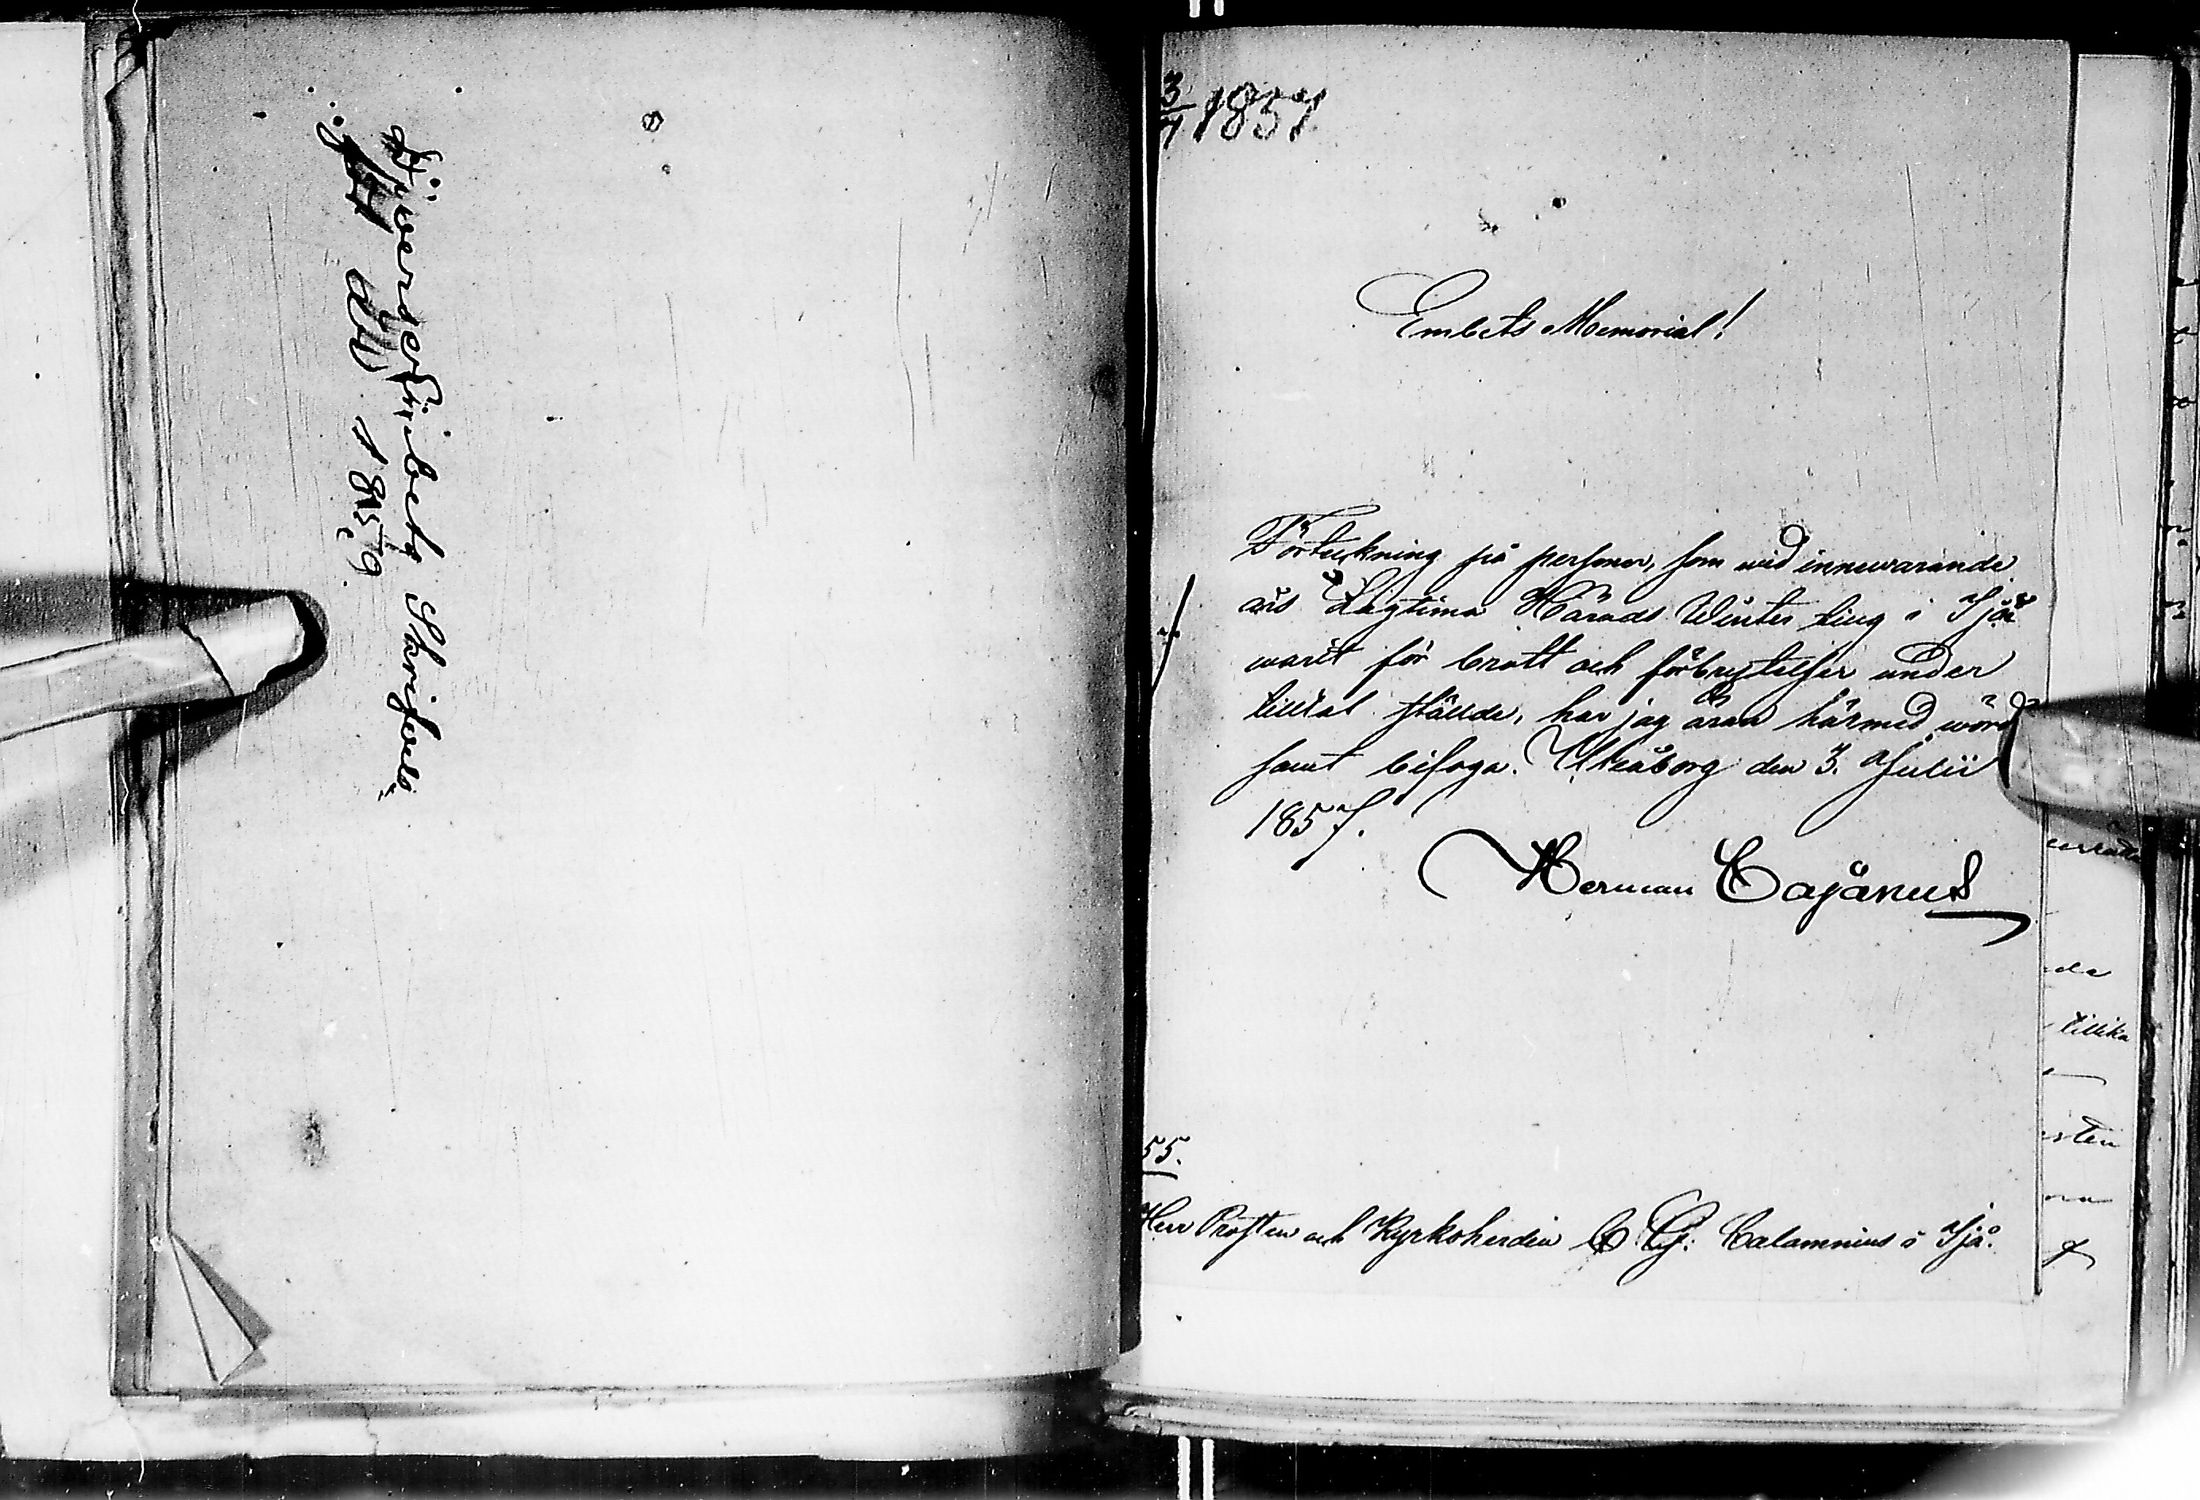 Diverse Embets Skrifvelser
för år 1859.
3/7 1857
Embets Memorial!
Förteckning på personer, som wid innewarande
års Lagtima Härads Winter ting i Ijo
warit för brott och förbrytelser under
tilltal stälde, har jag äran härmed wörd
samt bifoga. Uleåborg den 3. Julii
1857.
Herman Cajanus
55.
Herr Prosten och Kyrkoherden C. G. Calamnius i Ijo.
tillika